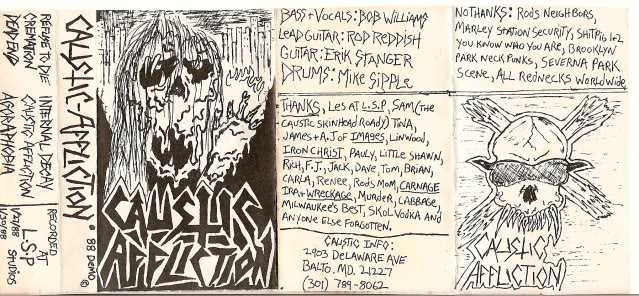 REFUSE TO DIE
CREMATION
DEAD END
INTERNAL DECAY
CAUSTIC AFFLICTION
AGORAPHOBIA
RECORDED
AT
L.S.P
STUDIOS
CAUSTIC-AFFLICTION • 88 DEMO ©
CAUSTIC
AFFLICTION
BASS+VOCALS: BOB WILLIAMS
LEAD GUITAR: ROD REDDISH
GUITAR: ERIK STANGER
DRUMS: MIKE SIPPLE
THANKS, LES AT L.S.P., SAM (THE
CAUSTIC SKINHEAD ROADY) TINA,
JAMES + A.J OF IMAGES, LINWOOD,
IRON CHRIST, PAULY, LITTLE SHAWN,
RICH, F.J., JACK, DAVE, TOM, BRIAN,
CARLA, RENEE, RODS MOM, CARNAGE
IRA + WRECKAGE, MURDER, LABBAGE,
MILWAUKEE'S BEST, SKOL VODKA AND
ANYONE ELSE FORGOTTEN.
CAUSTIC INFO:
2903 DELAWARE AVE
BALTO. MD. 21227
(301) 789-8062
NO THANKS: RODS NEIGHBORS,
MARLEY STATION SECURITY, SHITPIG 1+2
YOU KNOW WHO YOU ARE, BROOKLYN
PARK NECK PUNKS, SEVERNA PARK
SCENE, ALL REDNECKS WORLDWIDE
CAUSTIC
AFFLICTION